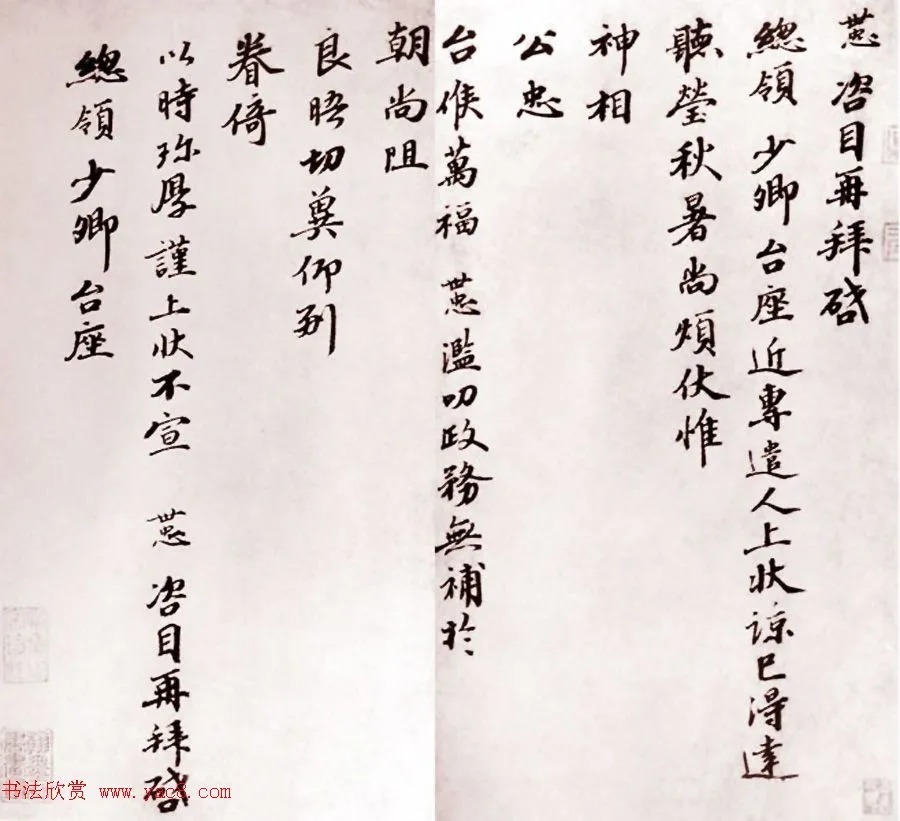 咨目再拜啓
總領 少卿台座近專遣人上狀諒已得達
聽瑩秋暑尚煩伏惟
神相
公忠
台候萬福 濫叨政務無補於
朝尚阻
良晤切冀仰副
眷倚
以時珎厚謹上狀不宣 咨目再拜啓
總領少卿台座
书法欣赏 www.yac8.com